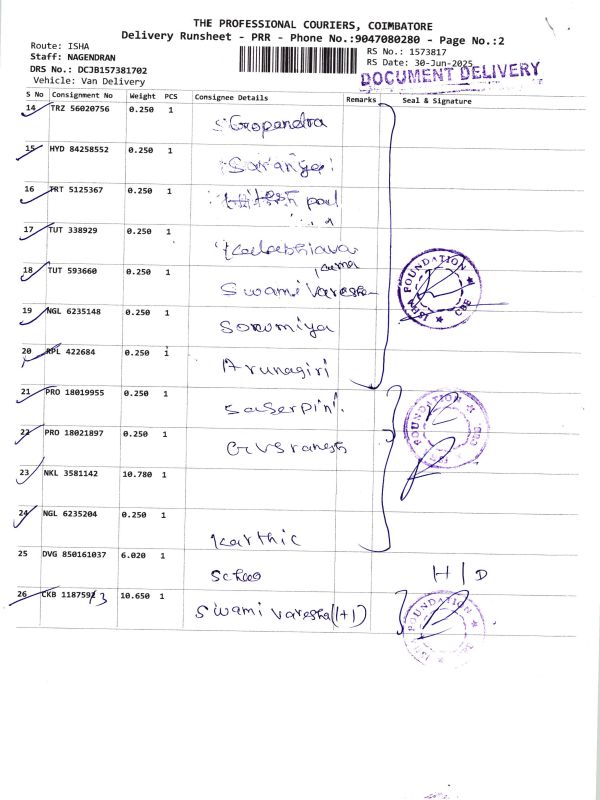 THE PROFESSIONAL COURIERS, COIMBATORE
Delivery Runsheet - PRR - Phone No.:9047080280 - Page No.:2
Route: ISHA
Staff: NAGENDRAN
DRS No.: DCJB157381702
Vehicle: Van Delivery
RS No.: 1573817
RS Date: 30-Jun-2025
DOCUMENT DELIVERY
S No Consignment No Weight PCS Consignee Details Remarks Seal & Signature
14 TRZ 56020756 0.250 1
S Gropendra
15 HYD 84258552 0.250 1
Saranya
16 TRT 5125367 0.250 1
paul
17 TUT 338929 0.250 1
18 TUT 593660 0.250 1
Swami Varesha
ISHA FOUNDATION CBE
19 NGL 6235148 0.250 1
Sowmiya
20 RPL 422684 0.250 1
Arunagiri
21 PRO 18019955 0.250 1
FOUNDATION
22 PRO 18021897 0.250 1
23 NKL 3581142 10.780 1
24 NGL 6235204 0.250 1
Karthic
25 DVG 850161037 6.020 1
H/D
26 CKB 1187592/3 10.650 1
Swami Varesha (1+1)
ISHA FOUNDATION CBE